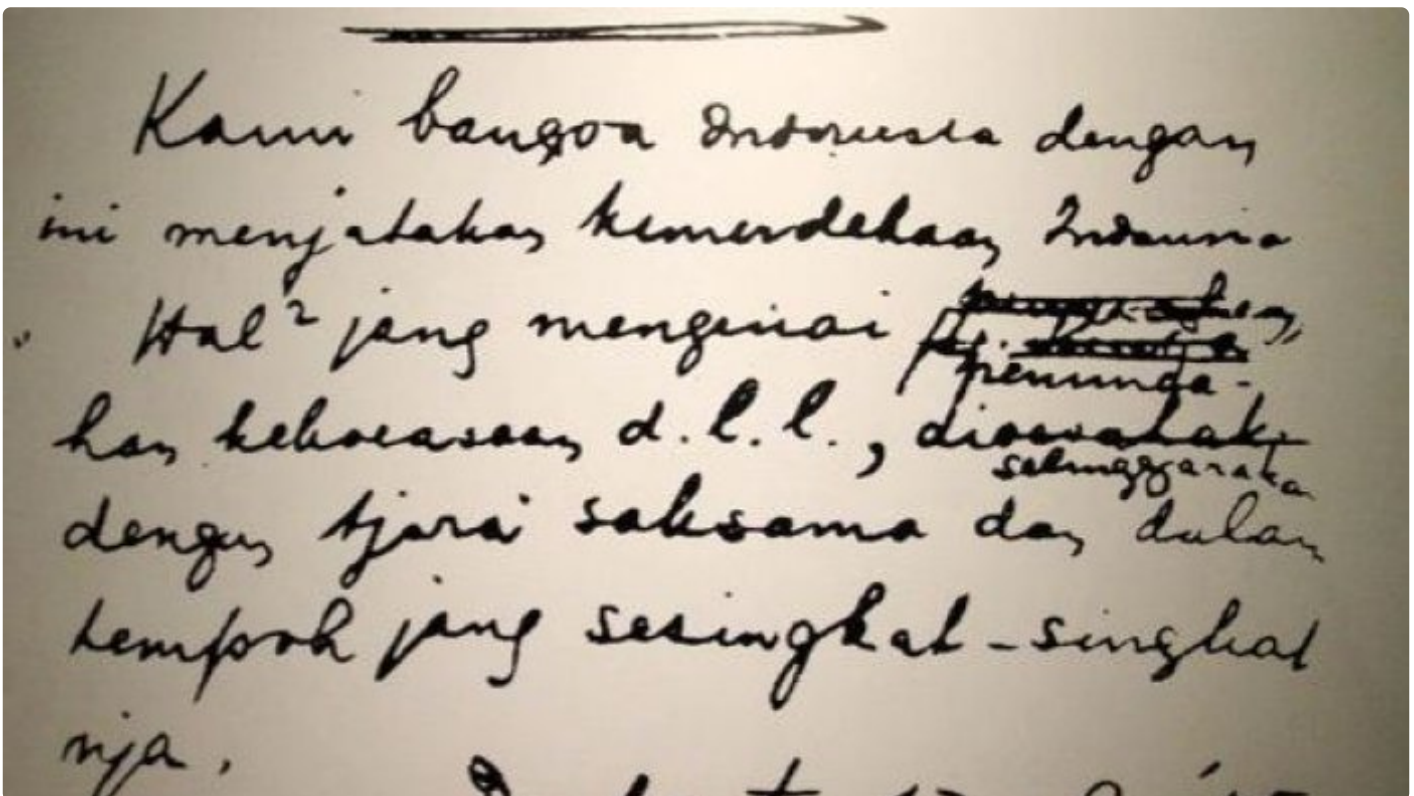 Kami bangsa Indonesia dengan
ini menjatakan kemerdekaan Indonesia
Hal² jang mengenai
peminda-
han kekoeasaan d.l.l.,
selenggarakan
dengan tjara saksama dan dalam
tempoh jang sesingkat-singkat
nja.